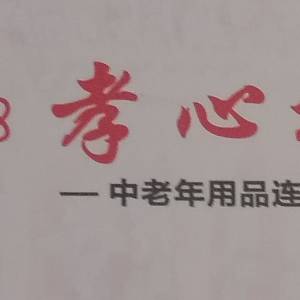 8 孝心
— 中老年用品连